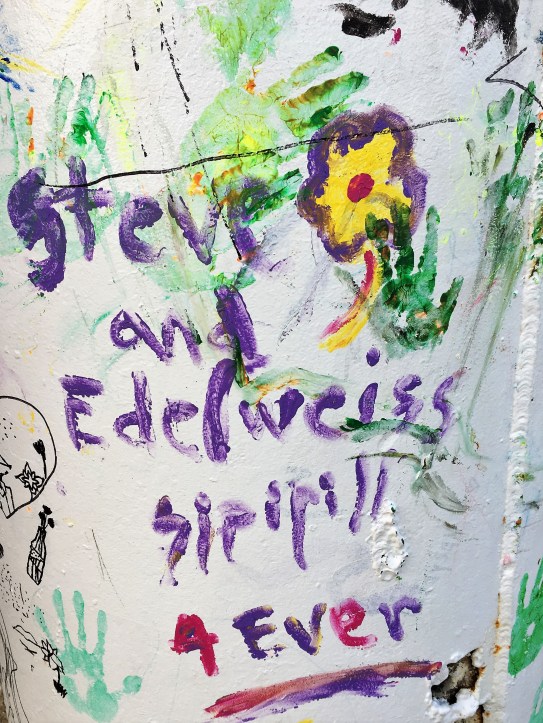 Steve
and
Edelweiss
Siririll
4 Ever